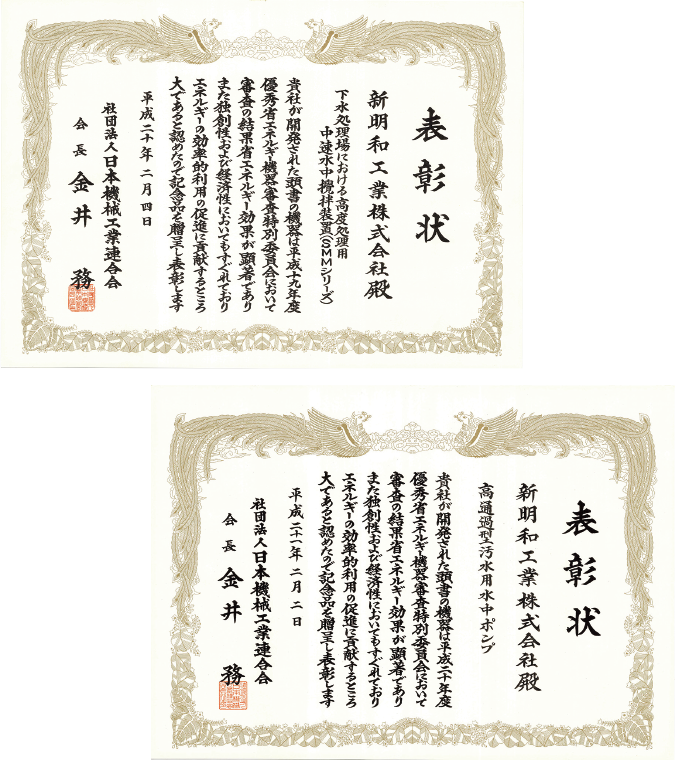 表彰状
新明和工業株式会社殿
下水処理場における高度処理用
中速水中攪拌装置(SMMシリーズ)
貴社が開発された頭書の機器は平成十九年度
優秀省エネルギー機器審査特別委員会において
審査の結果省エネルギー効果が顕著であり
また独創性および経済性においてもすぐれており
エネルギーの効率的利用の促進に貢献するところ
大であると認めたので記念品を贈呈し表彰します
平成二十年二月四日
社団法人日本機械工業連合会
会長 金井 務
表彰状
新明和工業株式会社殿
高通過型汚水用水中ポンプ
貴社が開発された頭書の機器は平成二十年度
優秀省エネルギー機器審査特別委員会において
審査の結果省エネルギー効果が顕著であり
また独創性および経済性においてもすぐれており
エネルギーの効率的利用の促進に貢献するところ
大であると認めたので記念品を贈呈し表彰します
平成二十一年二月二日
社団法人日本機械工業連合会
会長 金井 務